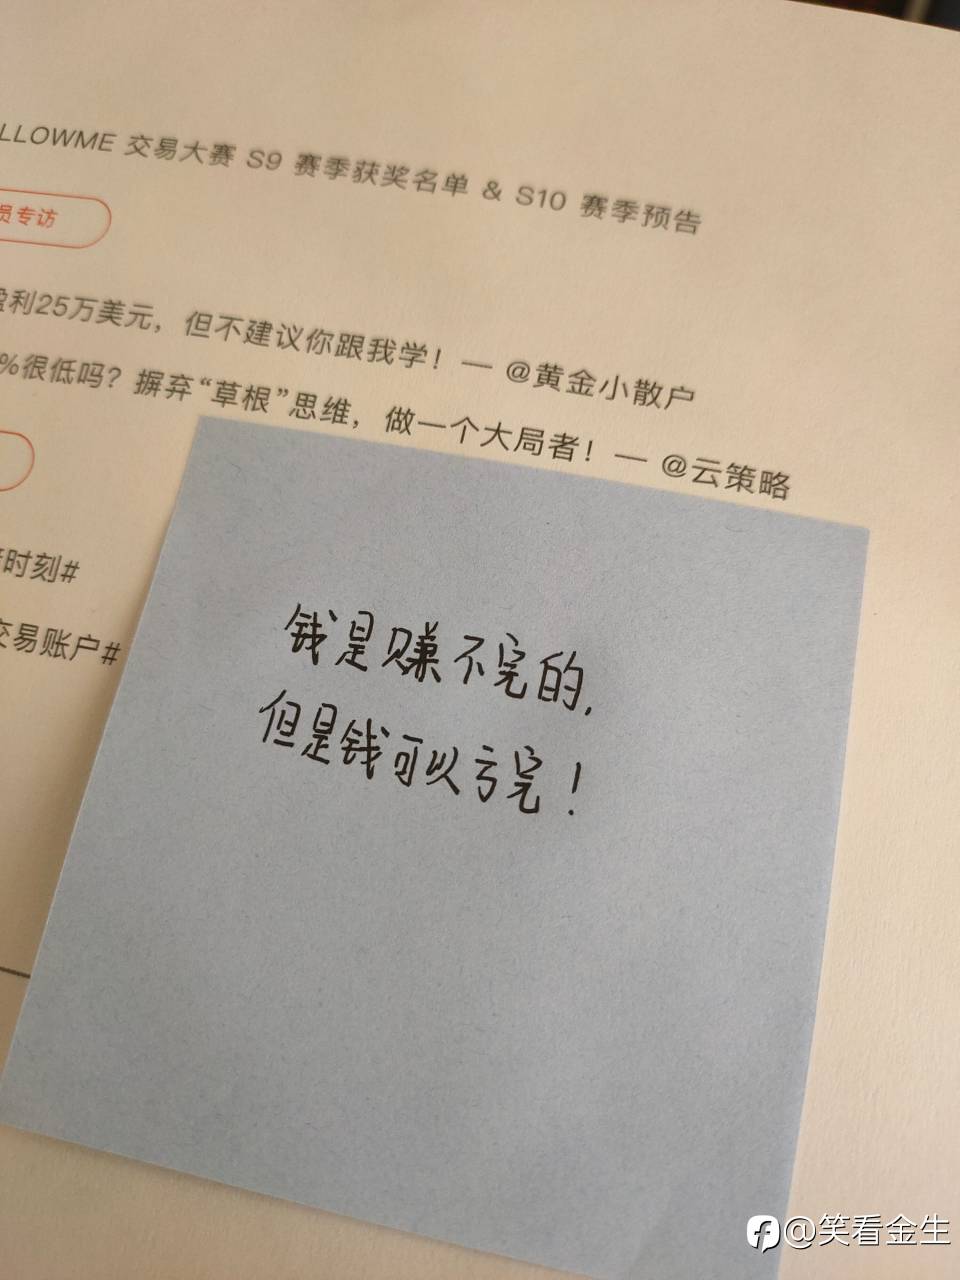 LLOWME 交易大赛 S9 赛季获奖名单 & S10 赛季预告
员专访
盈利25万美元，但不建议你跟我学！— @黄金小散户
%很低吗？摒弃“草根”思维，做一个大局者！— @云策略
时刻#
交易账户#
钱是赚不完的,
但是钱可以亏完！
@笑看金生